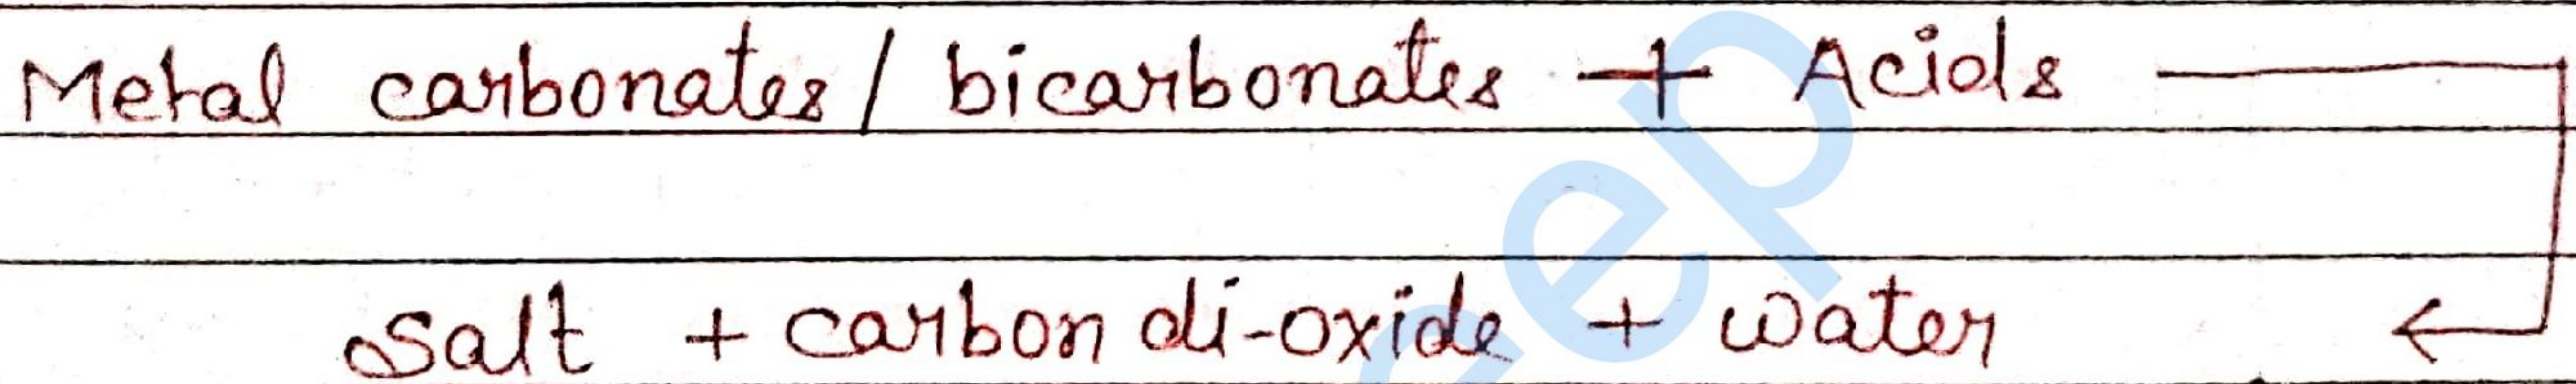 Metal carbonates/ bicarbonates + Acids
Salt + carbon di-oxide + water